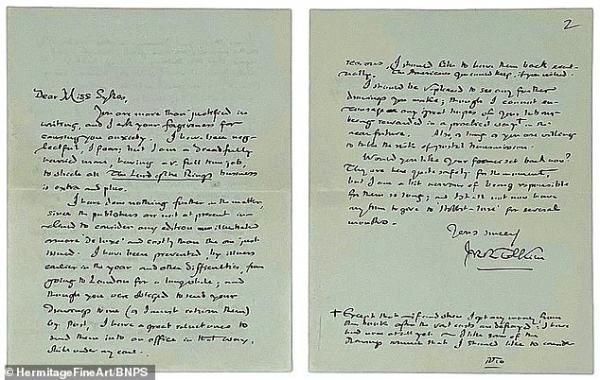 Dear Miss Sykes,
You are more than justified in
writing, and I ask your forgiveness for
causing you anxiety. I have been neg-
lectful, I fear, but I am a dreadfully
harried man, having a v. full time job,
to which all The Lord of the Rings business
is extra and plus.
I have done nothing further in the matter,
since the publishers are not at present in-
clined to consider any edition more illustrated
or more 'de luxe' and costly than the one just
issued. I have been prevented by illness
earlier in the year and other difficulties, from
going to London for a long while; and
though you were obliged to send your
drawings to me (as I must return them)
by post, I have a great reluctance to
send them into an office in that way,
while under my care.
2
reasons, I should like to have them back even-
tually. The Americans you could keep, if you wished.
I should be v. pleased to see any further
drawings you make; though I cannot en-
courage any great hopes of your labour
being rewarded in a practical way in the
near future. Also as long as you are willing
to take the risk of postal transmission.
Would you like your former set back now?
They are here quite safely for the moment,
but I am a bit nervous of being responsible
for them so long; and I shall not now have
any time to give to 'Hobbit-lore' for several
months.
Yours sincerely
J.R.R. Tolkien
† Except that if and when I get any money from
this book after the vast costs are defrayed, I have
had none at all yet. I like some of the
drawings so much that I should like to consider
PTO
© HermitageFineArt/BNPS